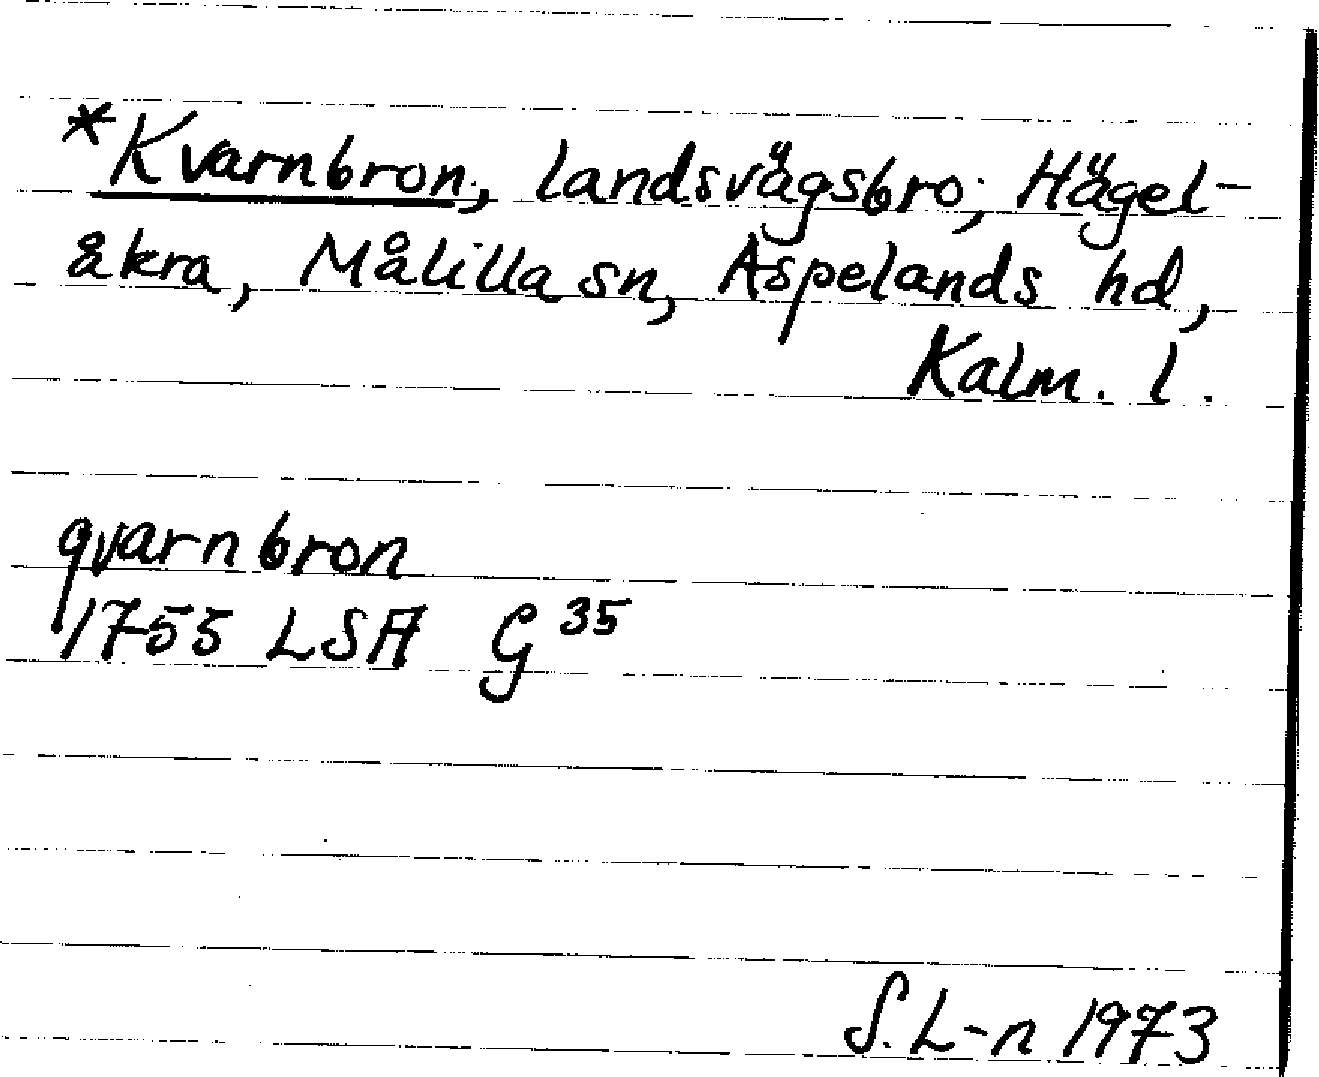 *Kvarnbron, landsvägsbro; Hägel-
åkra, Målilla sn, Aspelands hd,
Kalm. l.
qvarnbron
1755 LSA G 35
S. L-n 1973